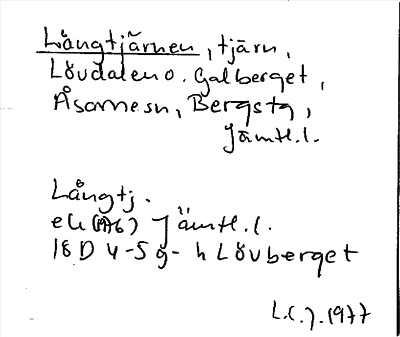 Långtjärnen, tjärn,
Lövdalen o. Galberget,
Åsarnesn, Bergstg,
Jämtl.l.
Långtj.
ek(1976) Jämtl.l.
18D 4-5 g-h Lövberget
L.C.J. 1977